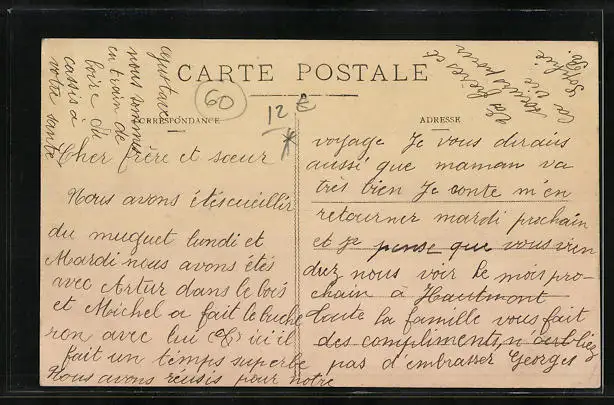 CARTE POSTALE
60
12 €
*
CORRESPONDANCE
ADRESSE
Gustave
nous sommes
en train de
boire du
cassis a
votre santé
Cher frère et sœur
Nous avons étés cueillir
du muguet lundi et
Mardi nous avons étés
avec Artur dans le bois
et Michel a fait le buche
ron avec lui ici il
fait un temps superbe
Nous avons réusis pour notre
voyage Je vous dirais
aussi que maman va
très bien Je conte m'en
retourner mardi prochain
et je pense que vous vien
drez nous voir le mois pro-
chain à Hautmont
toute la famille vous fait
des compliments n'oubliez
pas d'embrasser Georges
frères et
pour
la vie
Sophie